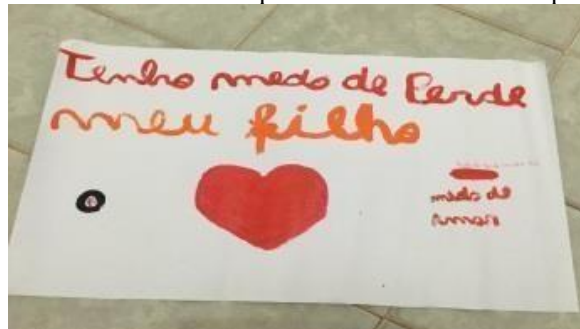 Tenho medo de Perde
meu filho
medo de